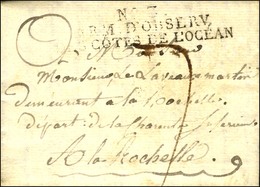 No 7
ARM. D'OBSERV.
CÔTES DE L'OCÉAN
A
Monsieur
demeurant a la Rochelle
départ. de la Charente Inferieure
A la Rochelle.